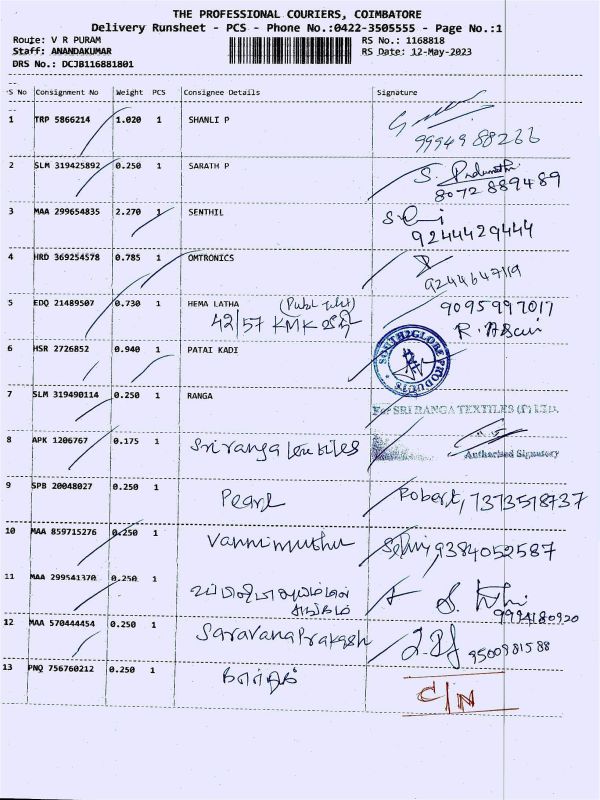 THE PROFESSIONAL COURIERS, COIMBATORE
Delivery Runsheet - PCS - Phone No.:0422-3505555 - Page No.:1
Route: V R PURAM RS No.: 1168818
Staff: ANANDAKUMAR RS Date: 12-May-2023
DRS No.: DCJB116881801
S No Consignment No Weight PCS Consignee Details Signature
1 TRP 5866214 1.020 1 SHANLI P
9994988266
2 SLM 319425892 0.250 1 SARATH P S.
8072889489
3 MAA 299654835 2.270 1 SENTHIL
9244429444
4 HRD 369254578 0.785 1 OMTRONICS
9244647119
5 EDQ 21489507 0.730 1 HEMA LATHA 9095997017
42/57 KMK வீதி
6 HSR 2726852 0.940 1 PATAI KADI
SOUTH2GLOBE PRODUCTS
7 SLM 319490114 0.250 1 RANGA
For SRI RANGA TEXTILES (P) LTD.
8 APK 1206767 0.175 1 Sri ranga textiles
Authorised Signatory
9 SPB 20048027 0.250 1 Pearl Robert, 7373578737
10 MAA 859715276 0.250 1 Vannimuthu Selvi 9384052587
11 MAA 299541370 0.250 1
சங்கம் 9994180920
12 MAA 570444454 0.250 1 Saravana Prakash
9500981588
13 PNQ 756760212 0.250 1
C/N